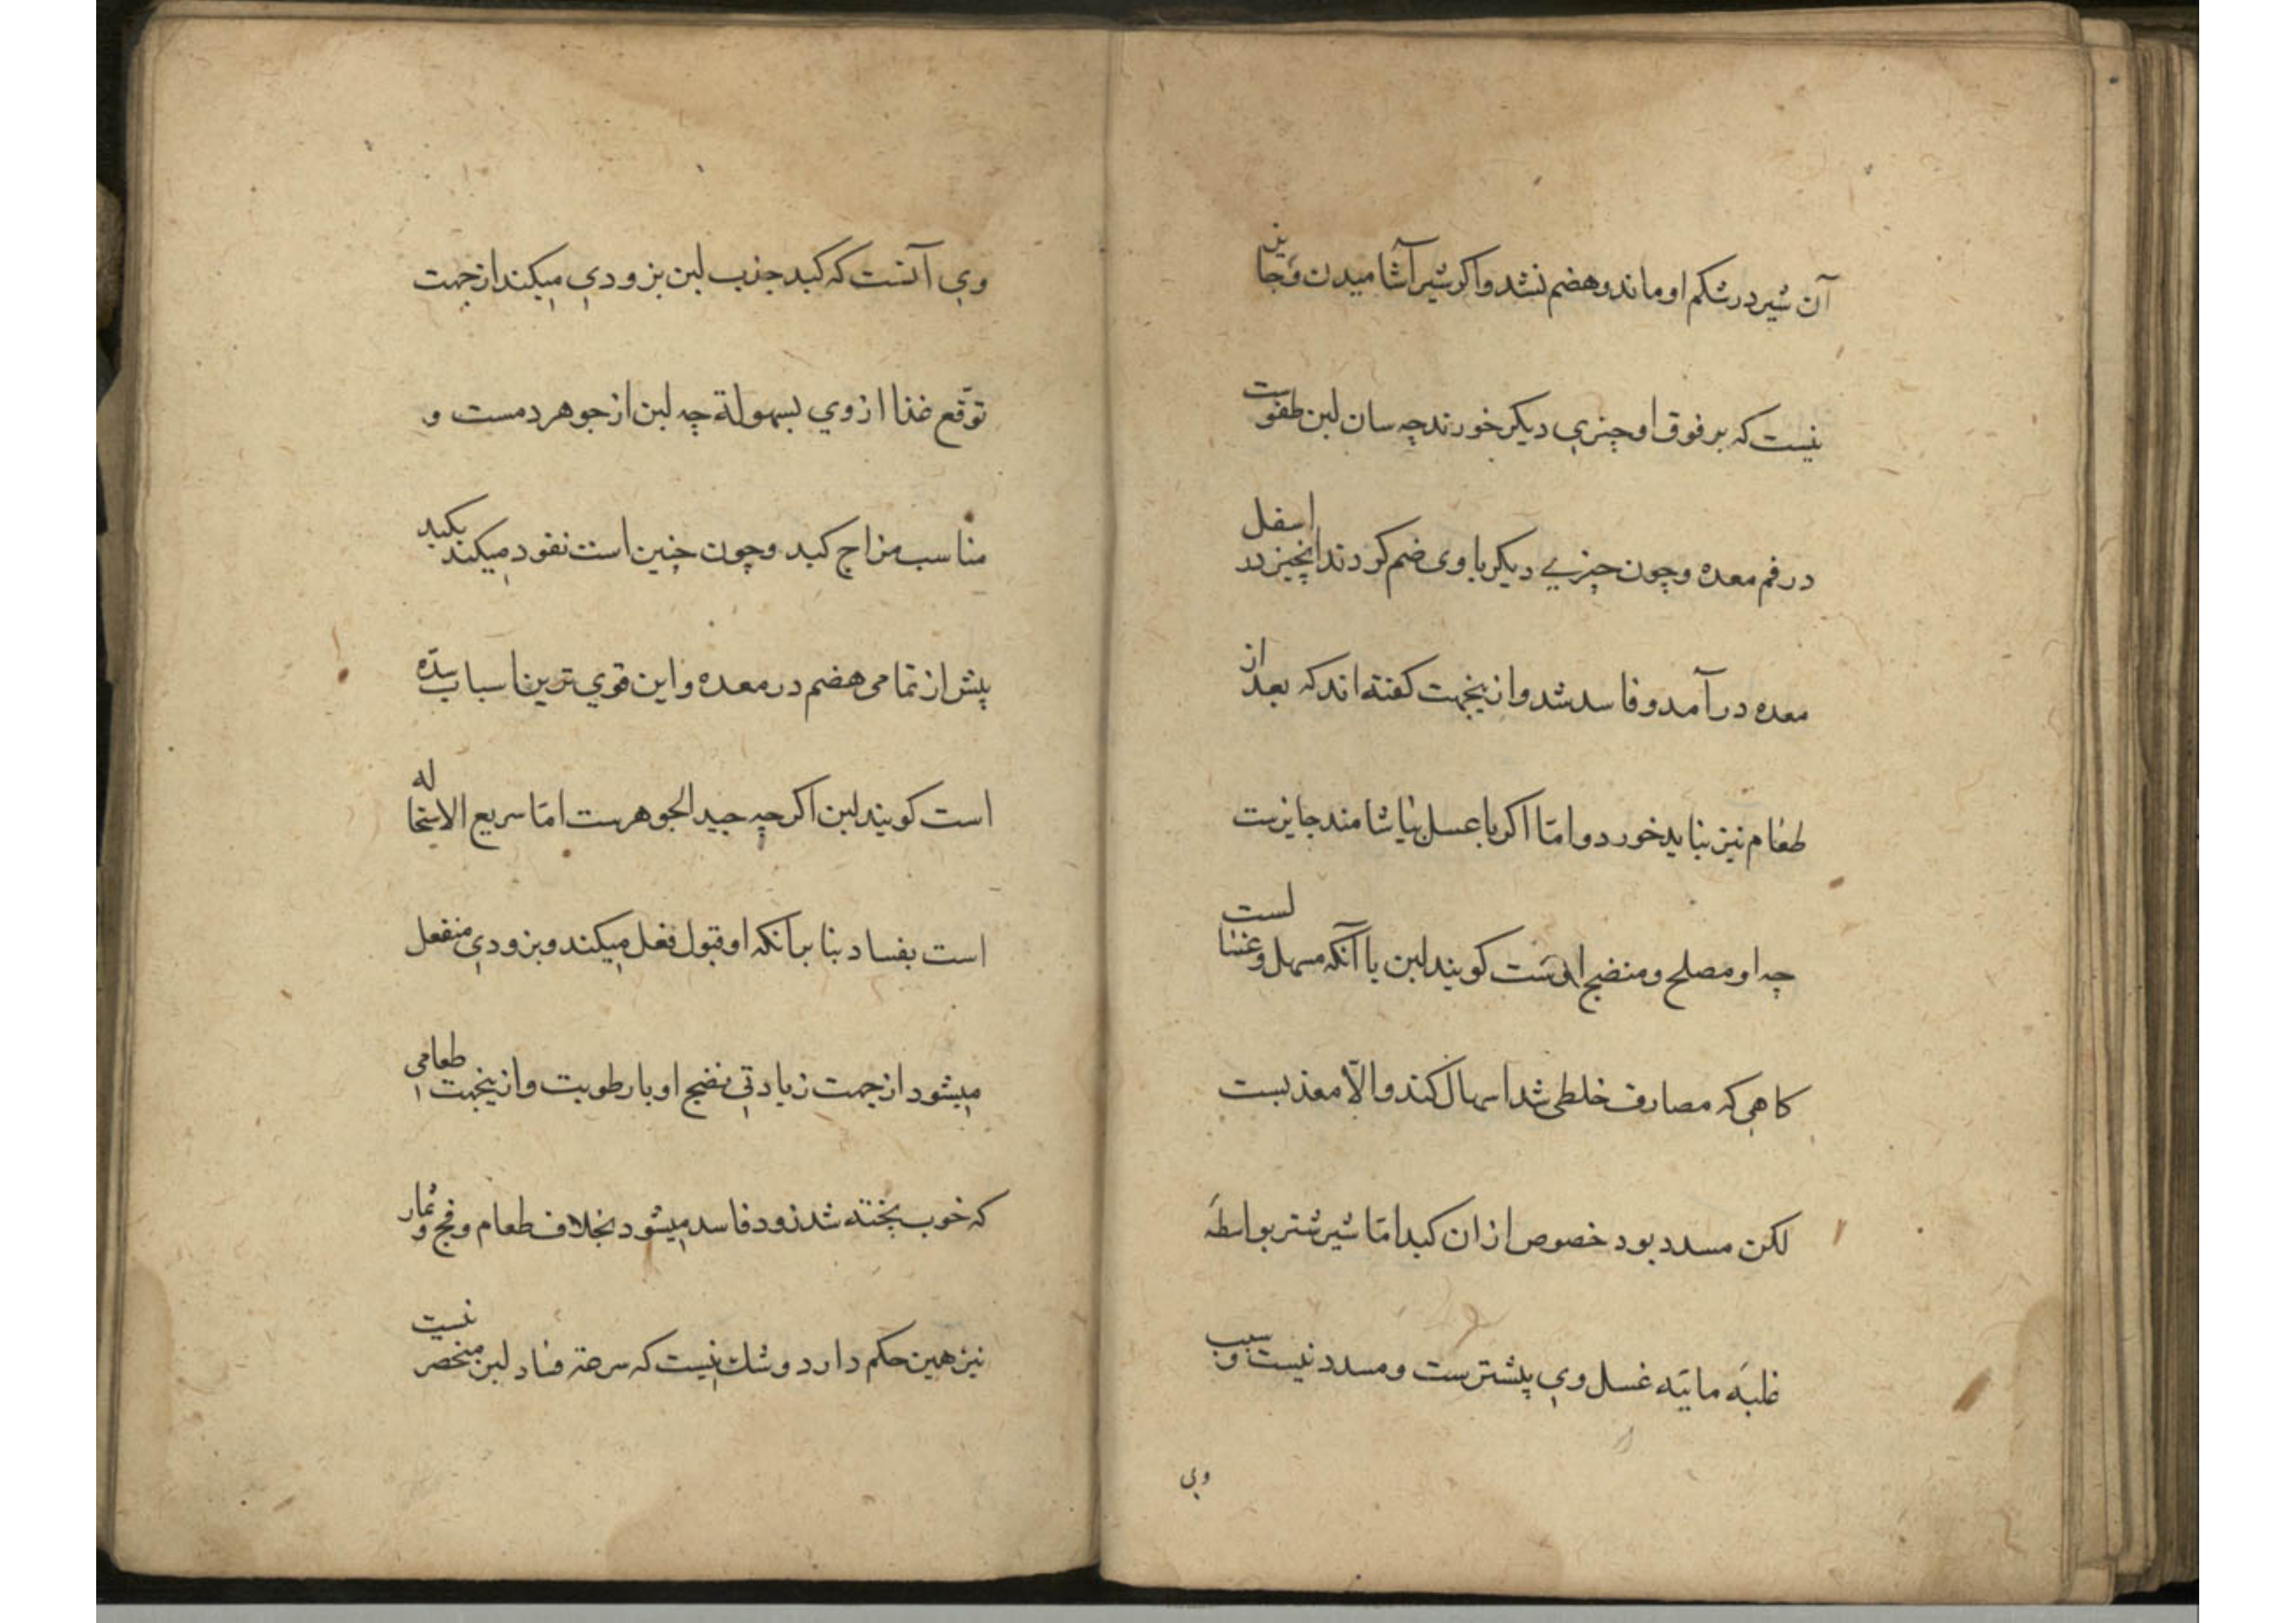 آن شیر در شکم او ماند و هضم نشد و اکر شیر آشامیدن و جایز
نیست که بر فوق او چیزي دیکر خورند چه سان لبن طفوست
در فم معده و چون چیزي دیکر با وی ضم کردند آنچیز در اسفل
معده در آمد و فاسد شد و ازینجهت کفته اند که بعد از
طعام نیز نباید خورد و اما اکر با عسل بیاشامند جایزست
چه او مصلح و منضج اوست کویند لبن با آنکه مسهل و غسالست
کاهی که مصارف خلطی شد اسهال کند و الّا مغذیست
لکن مسدد بود خصوص از ان کبد امّا شیر شتر بواسطه
غلبه مائیّه غسل وي پیشترست و مسدد نیست و سبب
وي
وي آنست که کبد جذب لبن بزودي میکند از جهت
توقّع غذا از وي بسهولة چه لبن از جوهر دمست و
مناسب مزاج کبد و چون چنین است نفود میکند بکبد
پیش از تمامی هضم در معده و این قوي ترین اسباب سدّه
است کویند لبن اکر چه جید الجوهرست امّا سریع الاستحاله
است بفساد بنا بر آنکه او قبول فعل میکند و بزودي منفعل
میشود از جهت زیادتي نضج او با رطوبت و ازینجهت طعامی
که خوب پخته شد زود فاسد میشود بخلاف طعام و فج و ثمار
نیز همین حکم دارد و شك نیست که سرعة فساد لبن منحصر نیست